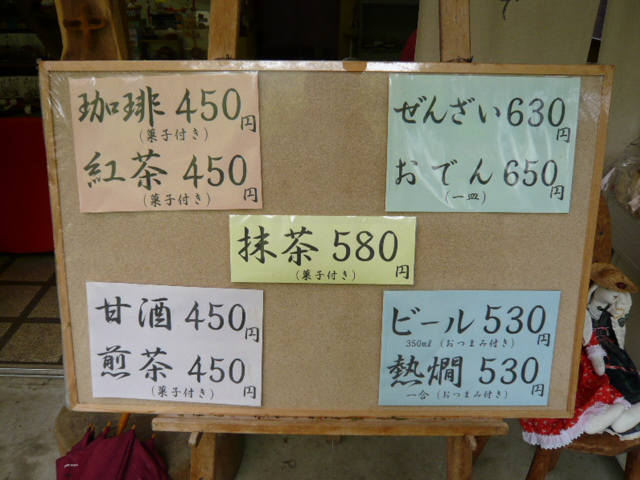 珈琲 450円
(菓子付き)
紅茶 450円
(菓子付き)
ぜんざい 630円
おでん 650円
(一皿)
抹茶 580円
(菓子付き)
甘酒 450円
煎茶 450円
(菓子付き)
ビール 530円
350ml (おつまみ付き)
熱燗 530円
一合 (おつまみ付き)